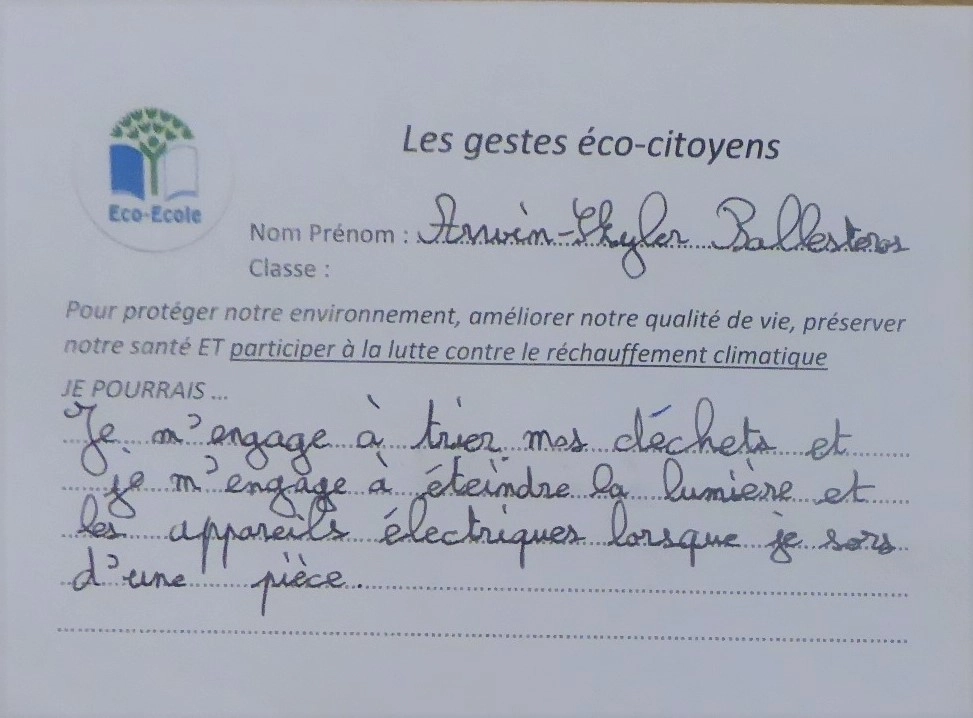 Les gestes éco-citoyens
Eco-Ecole
Nom Prénom : Arwin-Skyler Ballesteros
Classe :
Pour protéger notre environnement, améliorer notre qualité de vie, préserver
notre santé ET participer à la lutte contre le réchauffement climatique
JE POURRAIS ...
Je m'engage à trier mes déchets et
je m'engage à éteindre la lumière et
les appareils électriques lorsque je sors
d'une pièce.